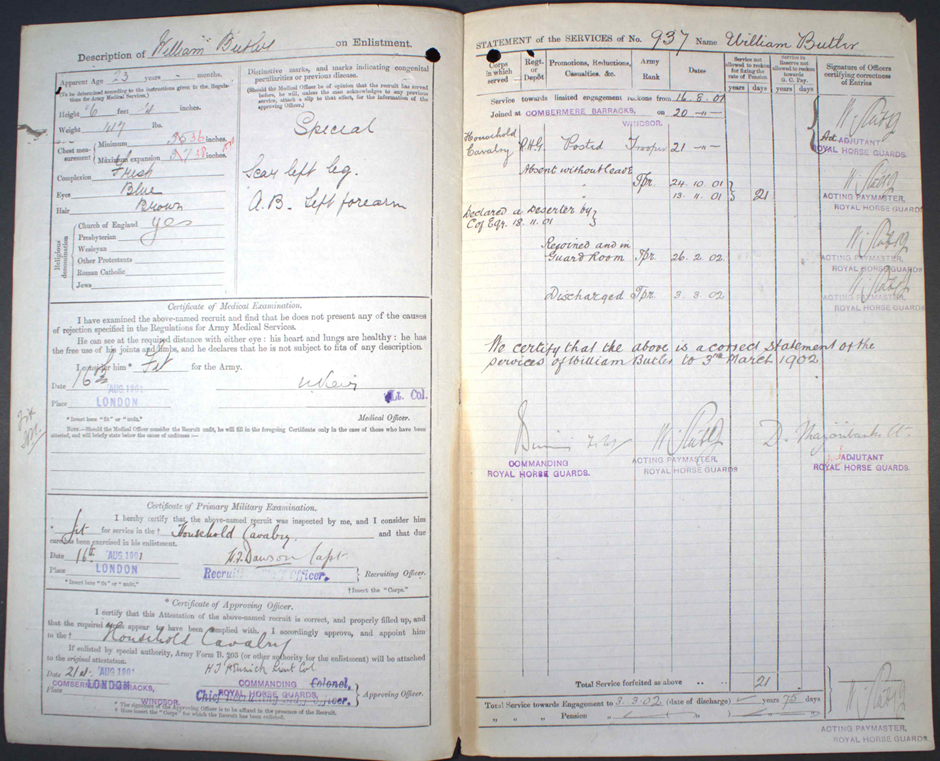 Description of William Butler on Enlistment.
Apparent Age 23 years - months.
(To be determined according to the instructions given in the Regulations for Army Medical Services.)
Height 6 feet inches.
Weight lbs.
Chest measurement { Minimum 36 inches.
Maximum expansion 38 inches.
Complexion Fresh
Eyes Blue
Hair Brown
Religious denomination
Church of England yes
Presbyterian
Wesleyan
Other Protestants
Roman Catholic
Jews
Distinctive marks, and marks indicating congenital peculiarities or previous disease.
(Should the Medical Officer be of opinion that the recruit has served before, he will, unless the man acknowledges to any previous service, attach a slip to that effect, for the information of the approving Officer.)
Special
Scar left leg.
A.B. Left forearm
Certificate of Medical Examination.
I have examined the above-named recruit and find that he does not present any of the causes
of rejection specified in the Regulations for Army Medical Services.
He can see at the required distance with either eye : his heart and lungs are healthy : he has
the free use of his joints and limbs, and he declares that he is not subject to fits of any description.
I consider him * Fit for the Army.
Date 16th AUG 1901
Place LONDON
Lt. Col.
Medical Officer.
* Insert here "fit" or "unfit."
NOTE.—Should the Medical Officer consider the Recruit unfit, he will fill in the foregoing Certificate only in the case of those who have been
attested, and will briefly state below the cause of unfitness :—
Certificate of Primary Military Examination.
I hereby certify that the above-named recruit was inspected by me, and I consider him
* fit for service in the † Household Cavalry and that due
care has been exercised in his enlistment.
Date 16th AUG 1901
H.F. Dawson Capt
Place LONDON
Recruiting Officer.
* Insert here "fit" or "unfit."
† Insert the "Corps."
* Certificate of Approving Officer.
I certify that this Attestation of the above-named recruit is correct, and properly filled up, and
that the required forms appear to have been complied with. I accordingly approve, and appoint him
to the † Household Cavalry
If enlisted by special authority, Army Form B. 203 (or other authority for the enlistment) will be attached
to the original attestation.
Date 21st AUG 1901
Lieut Col
COMMANDING Colonel,
Place COMBERMERE BARRACKS, LONDON
WINDSOR.
ROYAL HORSE GUARDS.
Approving Officer.
* The signature of the Approving Officer is to be affixed in the presence of the Recruit.
† Here insert the "Corps" for which the Recruit has been enlisted.
STATEMENT of the SERVICES of No. 937 Name William Butler
Corps in which served
Regt. or Depôt
Promotions, Reductions, Casualties, &c.
Army Rank
Dates
Service not allowed to reckon for fixing the rate of Pension
years days
Service in Reserve not allowed to reckon towards G. C. Pay.
years days
Signature of Officers certifying correctness of Entries
Service towards limited engagement reckons from 16.8.01
Joined at COMBERMERE BARRACKS, WINDSOR. on 20 -"-
Household Cavalry R.H.G. Posted Trooper 21 -"-
Act ADJUTANT
ROYAL HORSE GUARDS.
Absent without leave Tpr. 24.10.01
13.11.01 21
ACTING PAYMASTER,
ROYAL HORSE GUARDS
Declared a Deserter by
C of Eqy. 18.11.01
Rejoined and in
Guard Room Tpr. 26.2.02
ACTING PAYMASTER,
ROYAL HORSE GUARDS.
Discharged Tpr. 3.3.02
ACTING PAYMASTER,
ROYAL HORSE GUARDS.
We certify that the above is a correct statement of the
services of William Butler to 3rd March 1902
COMMANDING
ROYAL HORSE GUARDS.
ACTING PAYMASTER,
ROYAL HORSE GUARDS.
D. Marjoribanks Lt.
ADJUTANT
ROYAL HORSE GUARDS.
Total Service forfeited as above .. .. 21
Total Service towards Engagement to 3.3.02 (date of discharge) - years 75 days
" " " Pension
ACTING PAYMASTER
ROYAL HORSE GUARDS.